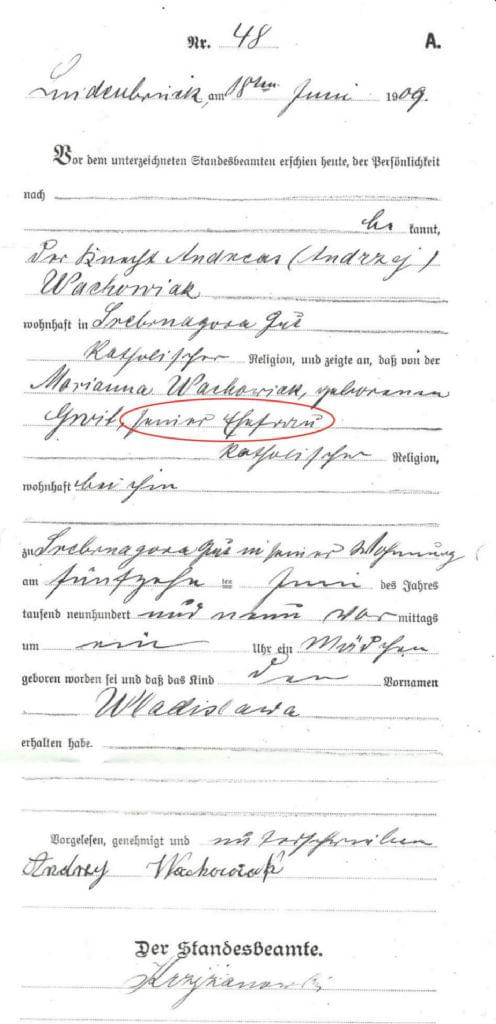 Nr. 48 A.
Lindenbrück, am 18ten Juni 1909.
Vor dem unterzeichneten Standesbeamten erschien heute, der Persönlichkeit
nach
be kannt,
der Knecht Andreas (Andrzej)
Wachowiak
wohnhaft in Srebrnagora Gut
katholischer Religion, und zeigte an, daß von der
Marianna Wachowiak, geborenen
seiner Ehefrau
katholischer Religion,
wohnhaft bei ihm
zu Srebrnagora Gut in seiner Wohnung
am fünfzehn ten Juni des Jahres
tausend neunhundert und neun vor mittags
um ein Uhr ein Mädchen
geboren worden sei und daß das Kind den Vornamen
Wladislawa
erhalten habe.
Vorgelesen, genehmigt und unterschrieben
Andrzy Wachowiak
Der Standesbeamte.
Krzyżanowski